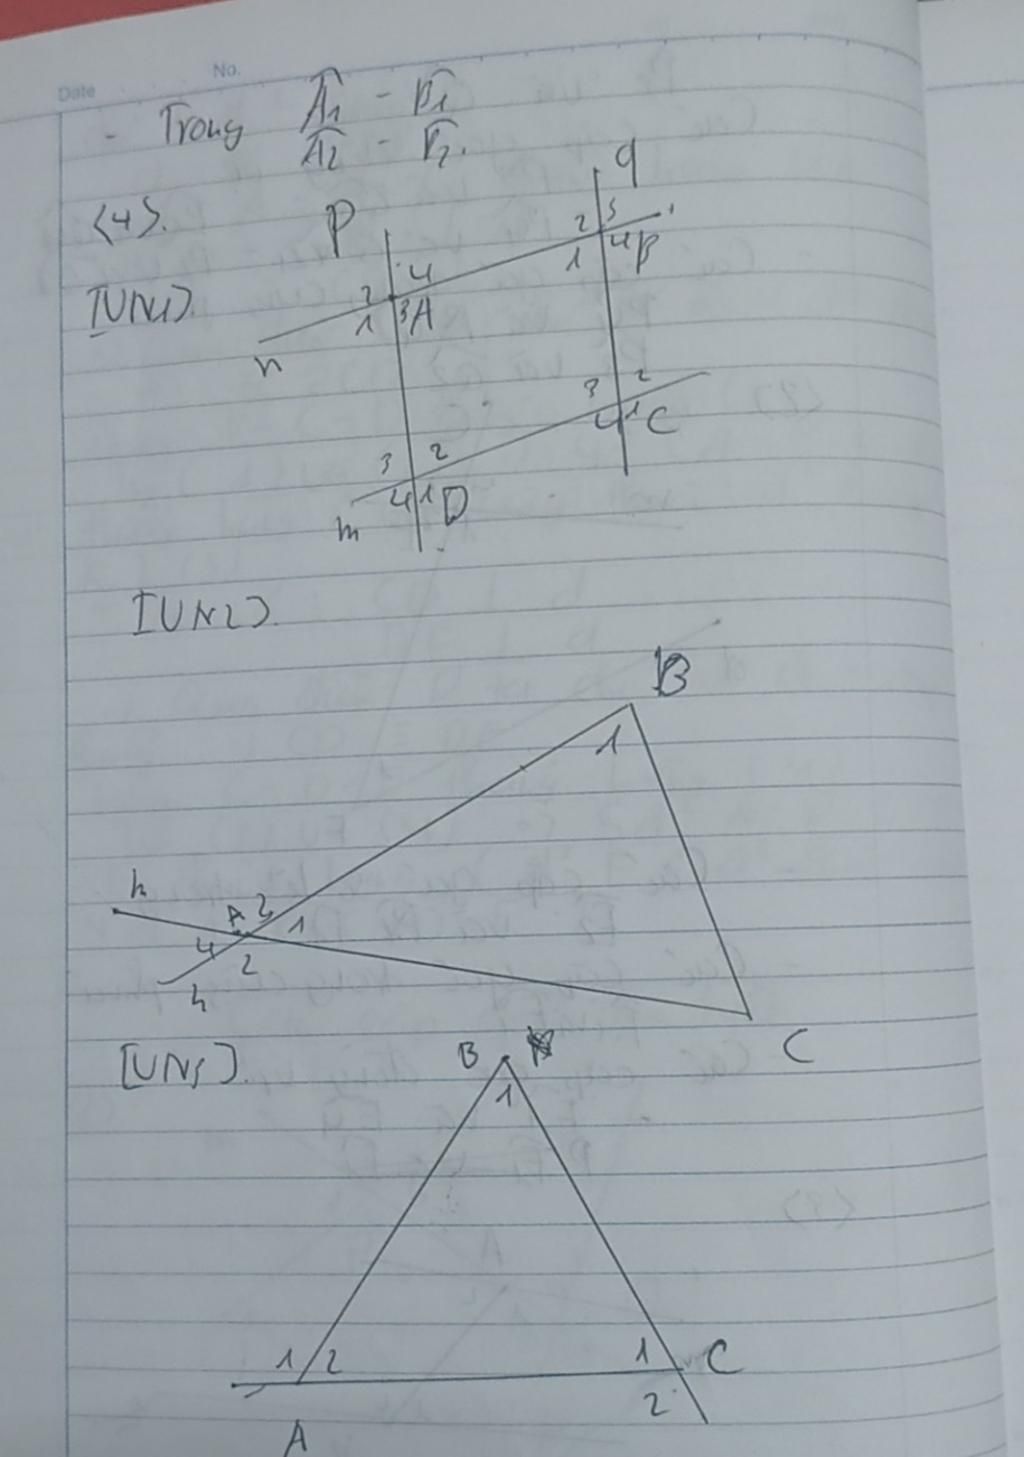 Date No.
- Trong A1 - B1
A2 - B2.
<4>.
P q
[UN1].
2 4 2 3
1 3 A 1 4 B
n
3 2 3 2
4 1 D 4 1 C
m
[UN2].
B
1
h
A 3 1
4 2
h
C
[UN3].
B
1
1 2 1 C
2
A